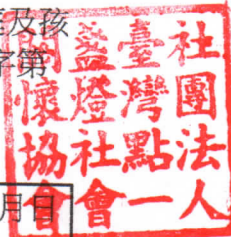 及孩
字第
月日
社團法人
臺灣點一
盞燈社會
關懷協會